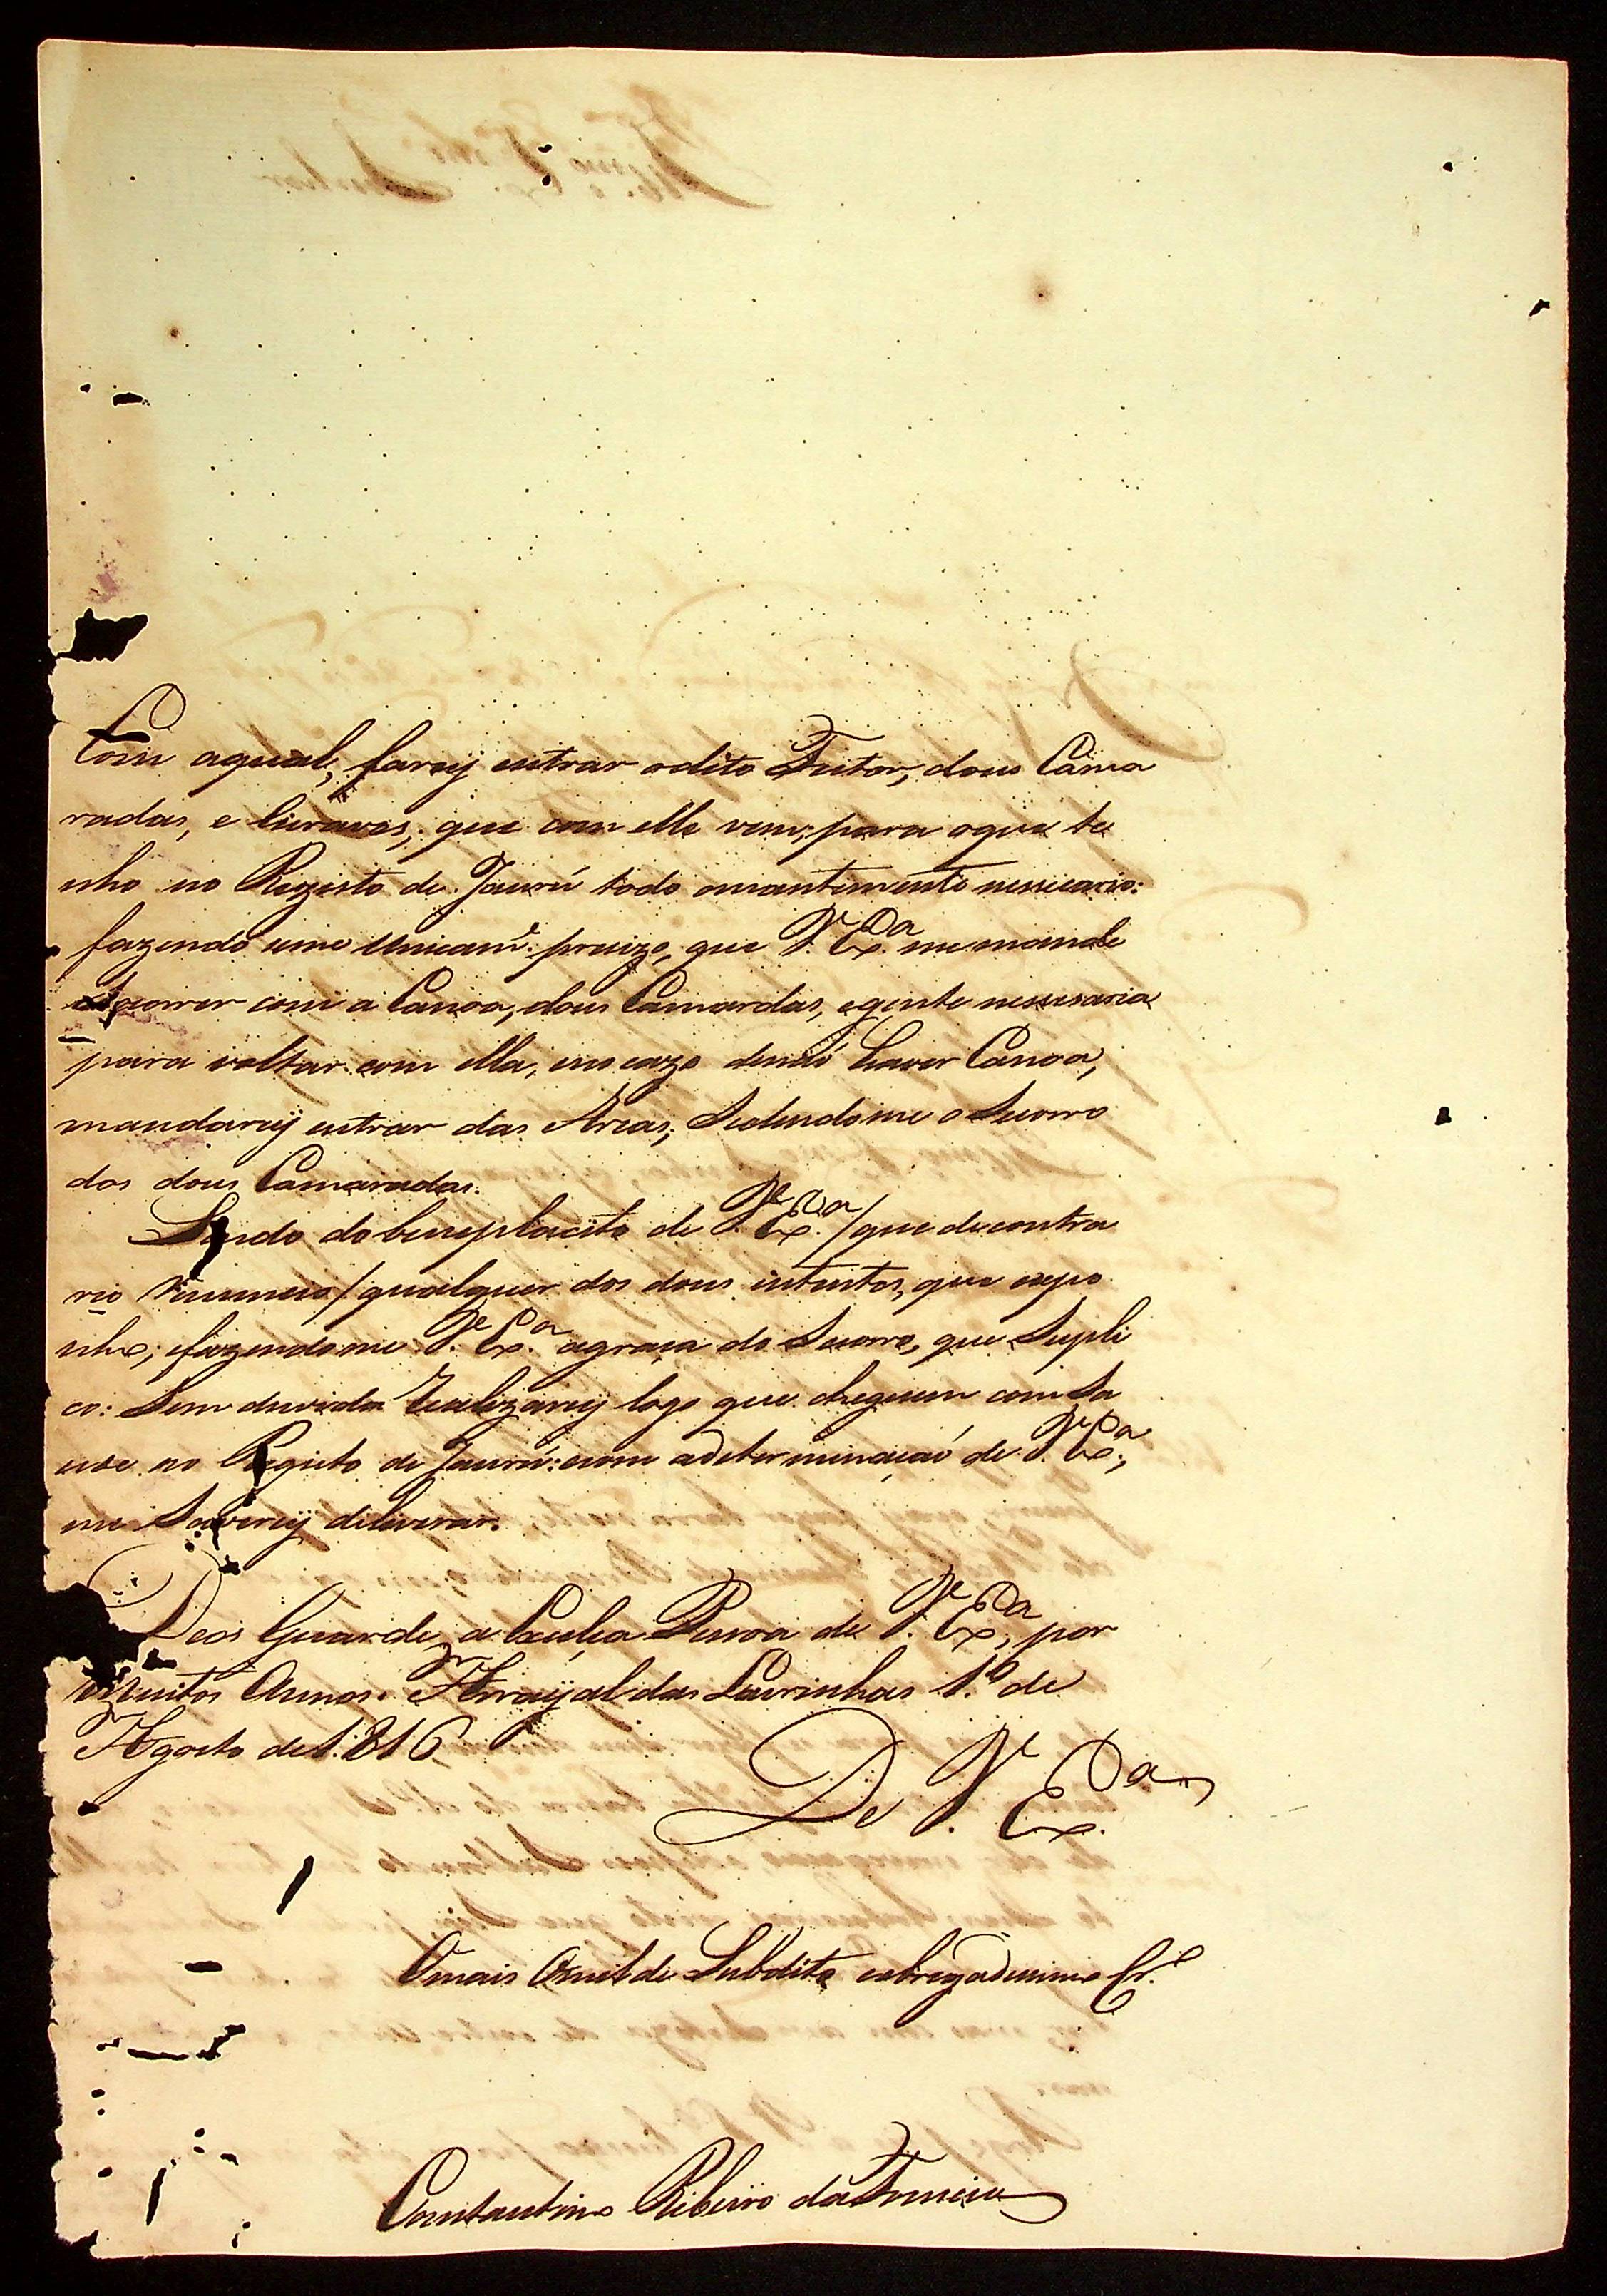 Com aqual, farey entrar odito Feitor, dous Cama
radas, e Escravos; que com elle vem; para oque te
nho no Rezisto de Jaurú todo omantimento nesseçario:
fazendo seme Unicam.e preuizo, que V.ª Ex.ª me mande
Socorrer com a Canoa, dous Camardas, egente nessesaria
para voltar com ella, eno cazo denaó haver Canoa,
mandarey entrar das Areas, Sedendome o Secorro
dos dous Camaradas.
Sendo do beneplacito de V.ª Ex.ª / que decontra
rio Renuncio / qualquer dos dous intentos, que expo
nho; efazendome V.ª Ex.ª agraça do Secorro, que Supli
co: Sem duvida Realizarey logo que cheguem com Sa
ude no Registo de Jaurú: com adeterminaçaó de V.ª Ex.ª,
me Saverey deliverar.
Deos Guarde a Exçelça Pessoa de V.ª Ex.ª, por
muitos Annos. Arrayal das Lavrinhas 1.º de
Agosto de 1:816
De V.ª Ex.ª
Omais Omilde Subdito eobrigadissimo Cr.º
Constantino Ribeiro da Fonseca